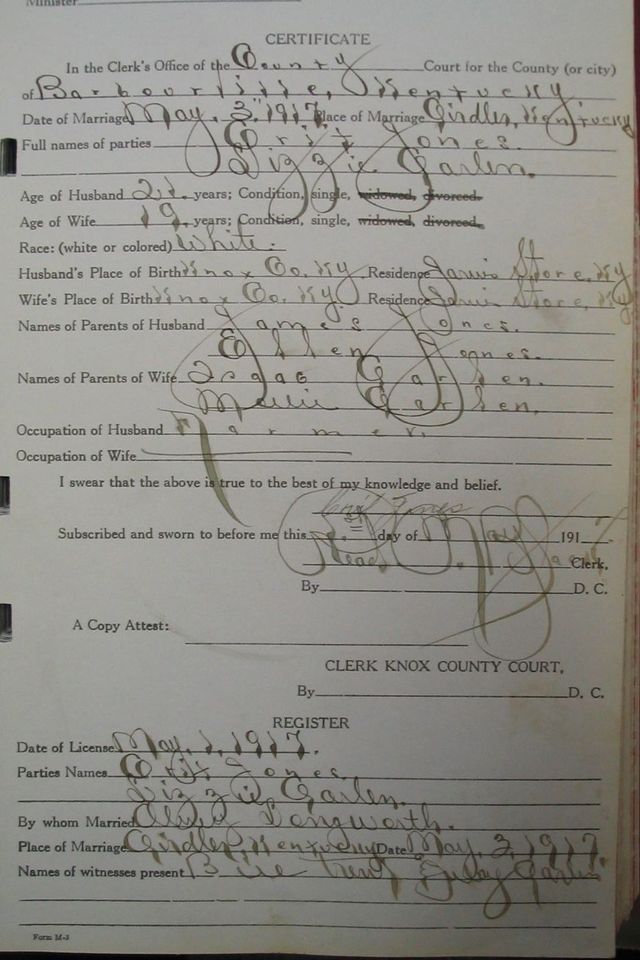 Minister
CERTIFICATE
In the Clerk's Office of the County Court for the County (or city)
of Barbourville, Kentucky
Date of Marriage May. 3. 1917 Place of Marriage Girdler, Kentucky
Full names of parties Jones.
Lizzie Garlen.
Age of Husband 21. years; Condition, single, widowed, divorced.
Age of Wife 19. years; Condition, single, widowed, divorced.
Race: (white or colored) White.
Husband's Place of Birth Knox Co. Ky Residence Jarvis Store, Ky
Wife's Place of Birth Knox Co. Ky. Residence Jarvis Store, Ky
Names of Parents of Husband James Jones.
Ellen Jones.
Names of Parents of Wife Isaac Garlen.
Garlen.
Occupation of Husband Farmer.
Occupation of Wife
I swear that the above is true to the best of my knowledge and belief.
Jones
Subscribed and sworn to before me this day of May 1917
Read Clerk.
By D. C.
A Copy Attest:
CLERK KNOX COUNTY COURT,
By D. C.
REGISTER
Date of License May. 1, 1917.
Parties Names Jones
Lizzie Garlen.
By whom Married Longworth.
Place of Marriage Girdler, Kentucky Date May. 3, 1917
Names of witnesses present Garlen
Form M-3